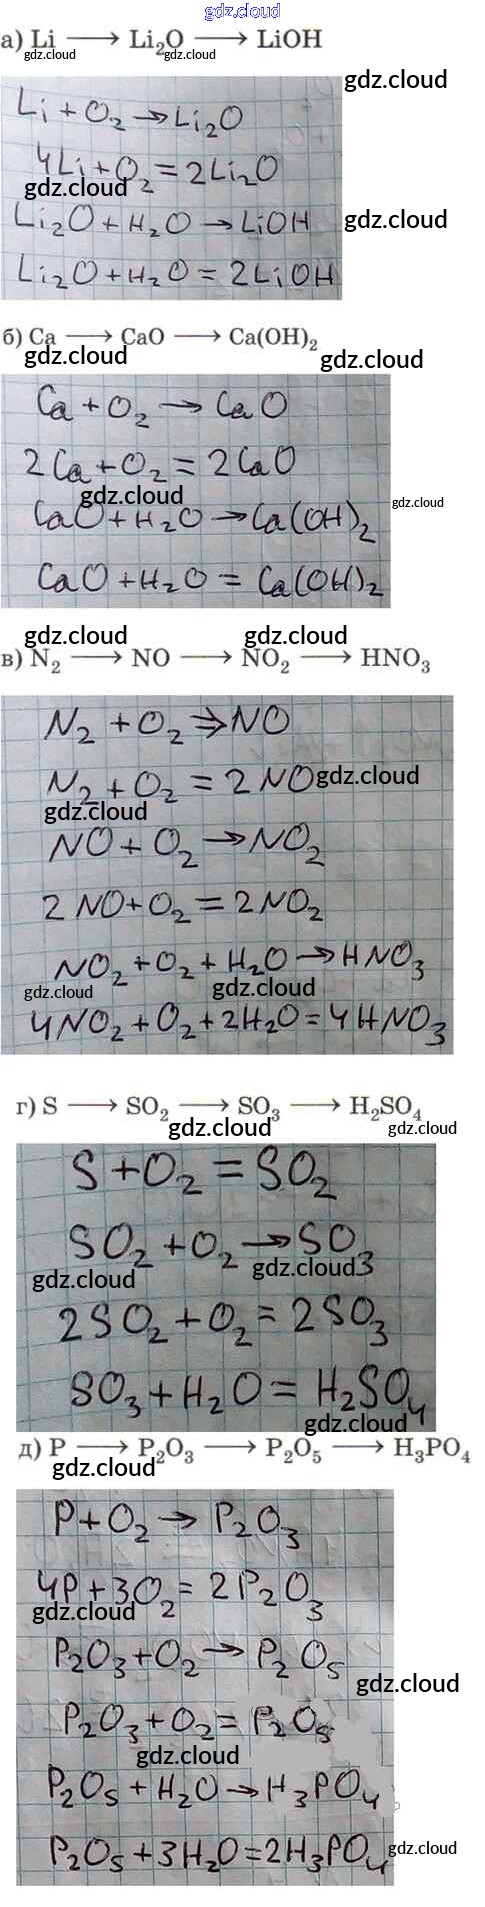 gdz.cloud
а) Li ⟶ Li₂O ⟶ LiOH
gdz.cloud gdz.cloud
gdz.cloud
Li + O₂ → Li₂O
4Li + O₂ = 2Li₂O
gdz.cloud
Li₂O + H₂O → LiOH
gdz.cloud
Li₂O + H₂O = 2LiOH
б) Ca ⟶ CaO ⟶ Ca(OH)₂
gdz.cloud gdz.cloud
Ca + O₂ → CaO
2Ca + O₂ = 2CaO
gdz.cloud gdz.cloud
CaO + H₂O → Ca(OH)₂
CaO + H₂O = Ca(OH)₂
gdz.cloud gdz.cloud
в) N₂ ⟶ NO ⟶ NO₂ ⟶ HNO₃
N₂ + O₂ → NO
N₂ + O₂ = 2NO
gdz.cloud
gdz.cloud
NO + O₂ → NO₂
2NO + O₂ = 2NO₂
NO₂ + O₂ + H₂O → HNO₃
gdz.cloud gdz.cloud
4NO₂ + O₂ + 2H₂O = 4HNO₃
г) S ⟶ SO₂ ⟶ SO₃ ⟶ H₂SO₄
gdz.cloud gdz.cloud
S + O₂ = SO₂
SO₂ + O₂ → SO₃
gdz.cloud gdz.cloud3
2SO₂ + O₂ = 2SO₃
SO₃ + H₂O = H₂SO₄
gdz.cloud
д) P ⟶ P₂O₃ ⟶ P₂O₅ ⟶ H₃PO₄
gdz.cloud
P + O₂ → P₂O₃
4P + 3O₂ = 2P₂O₃
gdz.cloud
P₂O₃ + O₂ → P₂O₅
gdz.cloud
P₂O₃ + O₂ = P₂O₅
gdz.cloud
P₂O₅ + H₂O → H₃PO₄
P₂O₅ + 3H₂O = 2H₃PO₄
gdz.cloud